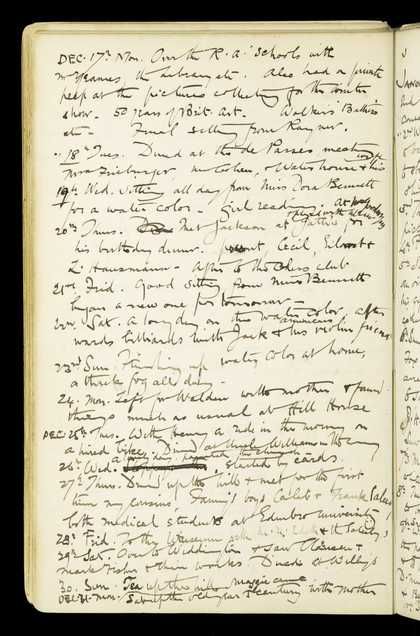 DEC. 17th Mon. Over the R.a. Schools with
Mr Yeames, the librarian etc. Also had a private
peep at the pictures collecting for the winter
show. 50 years of Brit. Art. Walker's Bathers
etc - Final sitting from Rayner.
18th Tues. Dined at the de Passes meeting
Mrs Waterhouse & his
19th Wed. Sitting all day from Miss Dora Bennett
for a water color - Girl reading. At
20th Thurs. Met Jackson at for
his birthday dinner. present, Cecil, &
L. Hausmann - After to the Chess club
21st Frid. Good sitting from Miss Bennett
began a new one for tomorrow -
22nd Sat. A long day on the water color, after
wards billiards with Jack & his american friend
23rd Sun. Finishing up water color at home,
a thick fog all day -
24. Mon. Left for Walden with mother & found
things much as usual at Hill House
DEC. 25th Tues. With Henry a ride in the morning on
a hired bike. Dining at Uncle Williams in the evening
26th Wed. started by cards.
27th Thurs. Dined up the hill & met for the first
time my cousins, Fanny's boys Caleb & Frank Salas,
both medical students at Edinbro' university
28th Frid. To the Museum
29th Sat. Over to Widdington & saw Clausen &
Mark Fisher & their works. Dined at Willy's
30. Sun. Tea up the hill. Maggie came
DEC 31. Mon. Sat up the old year & century with mother